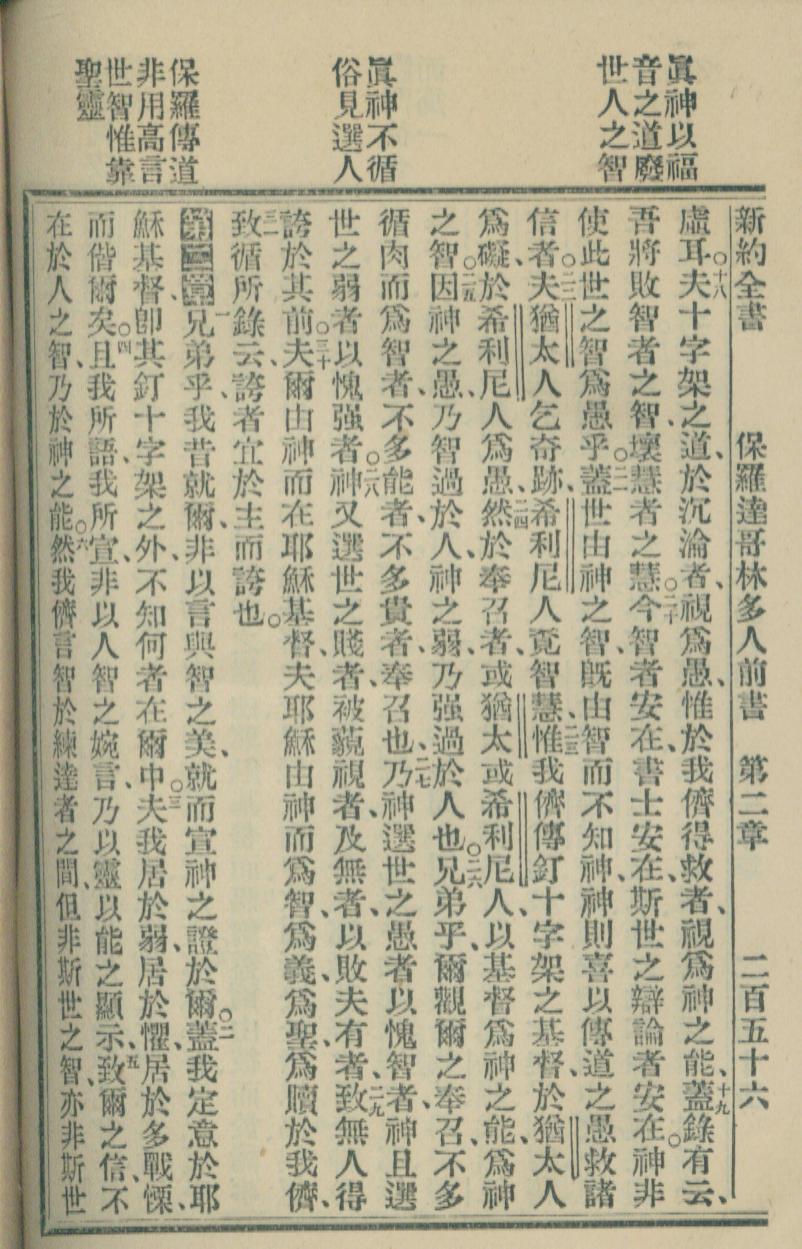 新約全書 保羅達哥林多人前書 第二章 二百五十六
眞神以福
音之道廢
世人之智
眞神不循
俗見選人
保羅傳道
非用高言
世智惟靠
聖靈
虛耳○十八夫十字架之道、於沉淪者、視爲愚、惟於我儕得救者、視爲神之能、十九蓋錄有云、
吾將敗智者之智、壞慧者之慧○二十今智者安在、書士安在、斯世之辯論者安在○神非
使此世之智爲愚乎○二一蓋世由神之智、旣由智而不知神、神則喜以傳道之愚、救諸
信者○二二夫猶太人乞奇跡、希利尼人覓智慧、二三惟我儕傳釘十字架之基督、於猶太人
爲礙、於希利尼人爲愚、二四然於奉召者、或猶太或希利尼人、以基督爲神之能、爲神
之智○二五因神之愚、乃智過於人、神之弱、乃强過於人也○二六兄弟乎、爾觀爾之奉召、不多
循肉而爲智者、不多能者、不多貴者、奉召也、二七乃神選世之愚者、以愧智者、神且選
世之弱者、以愧强者○二八神又選世之賤者、被藐視者、及無者、以敗夫有者、二九致無人得
誇於其前○三十夫爾由神而在耶穌基督、夫耶穌由神而爲智、爲義、爲聖、爲贖於我儕、
三一致循所錄云、誇者宜於主而誇也○
第二章一兄弟乎、我昔就爾、非以言與智之美、就而宣神之證於爾○二蓋我定意於耶
穌基督卽其釘十字架之外、不知何者在爾中○三夫我居於弱、居於懼、居於多戰慄、
而偕爾矣○四且我所語、我所宣、非以人智之婉言、乃以靈以能之顯示、五致爾之信、不
在於人之智、乃於神之能○六然我儕言智於練達者之間、但非斯世之智、亦非斯世